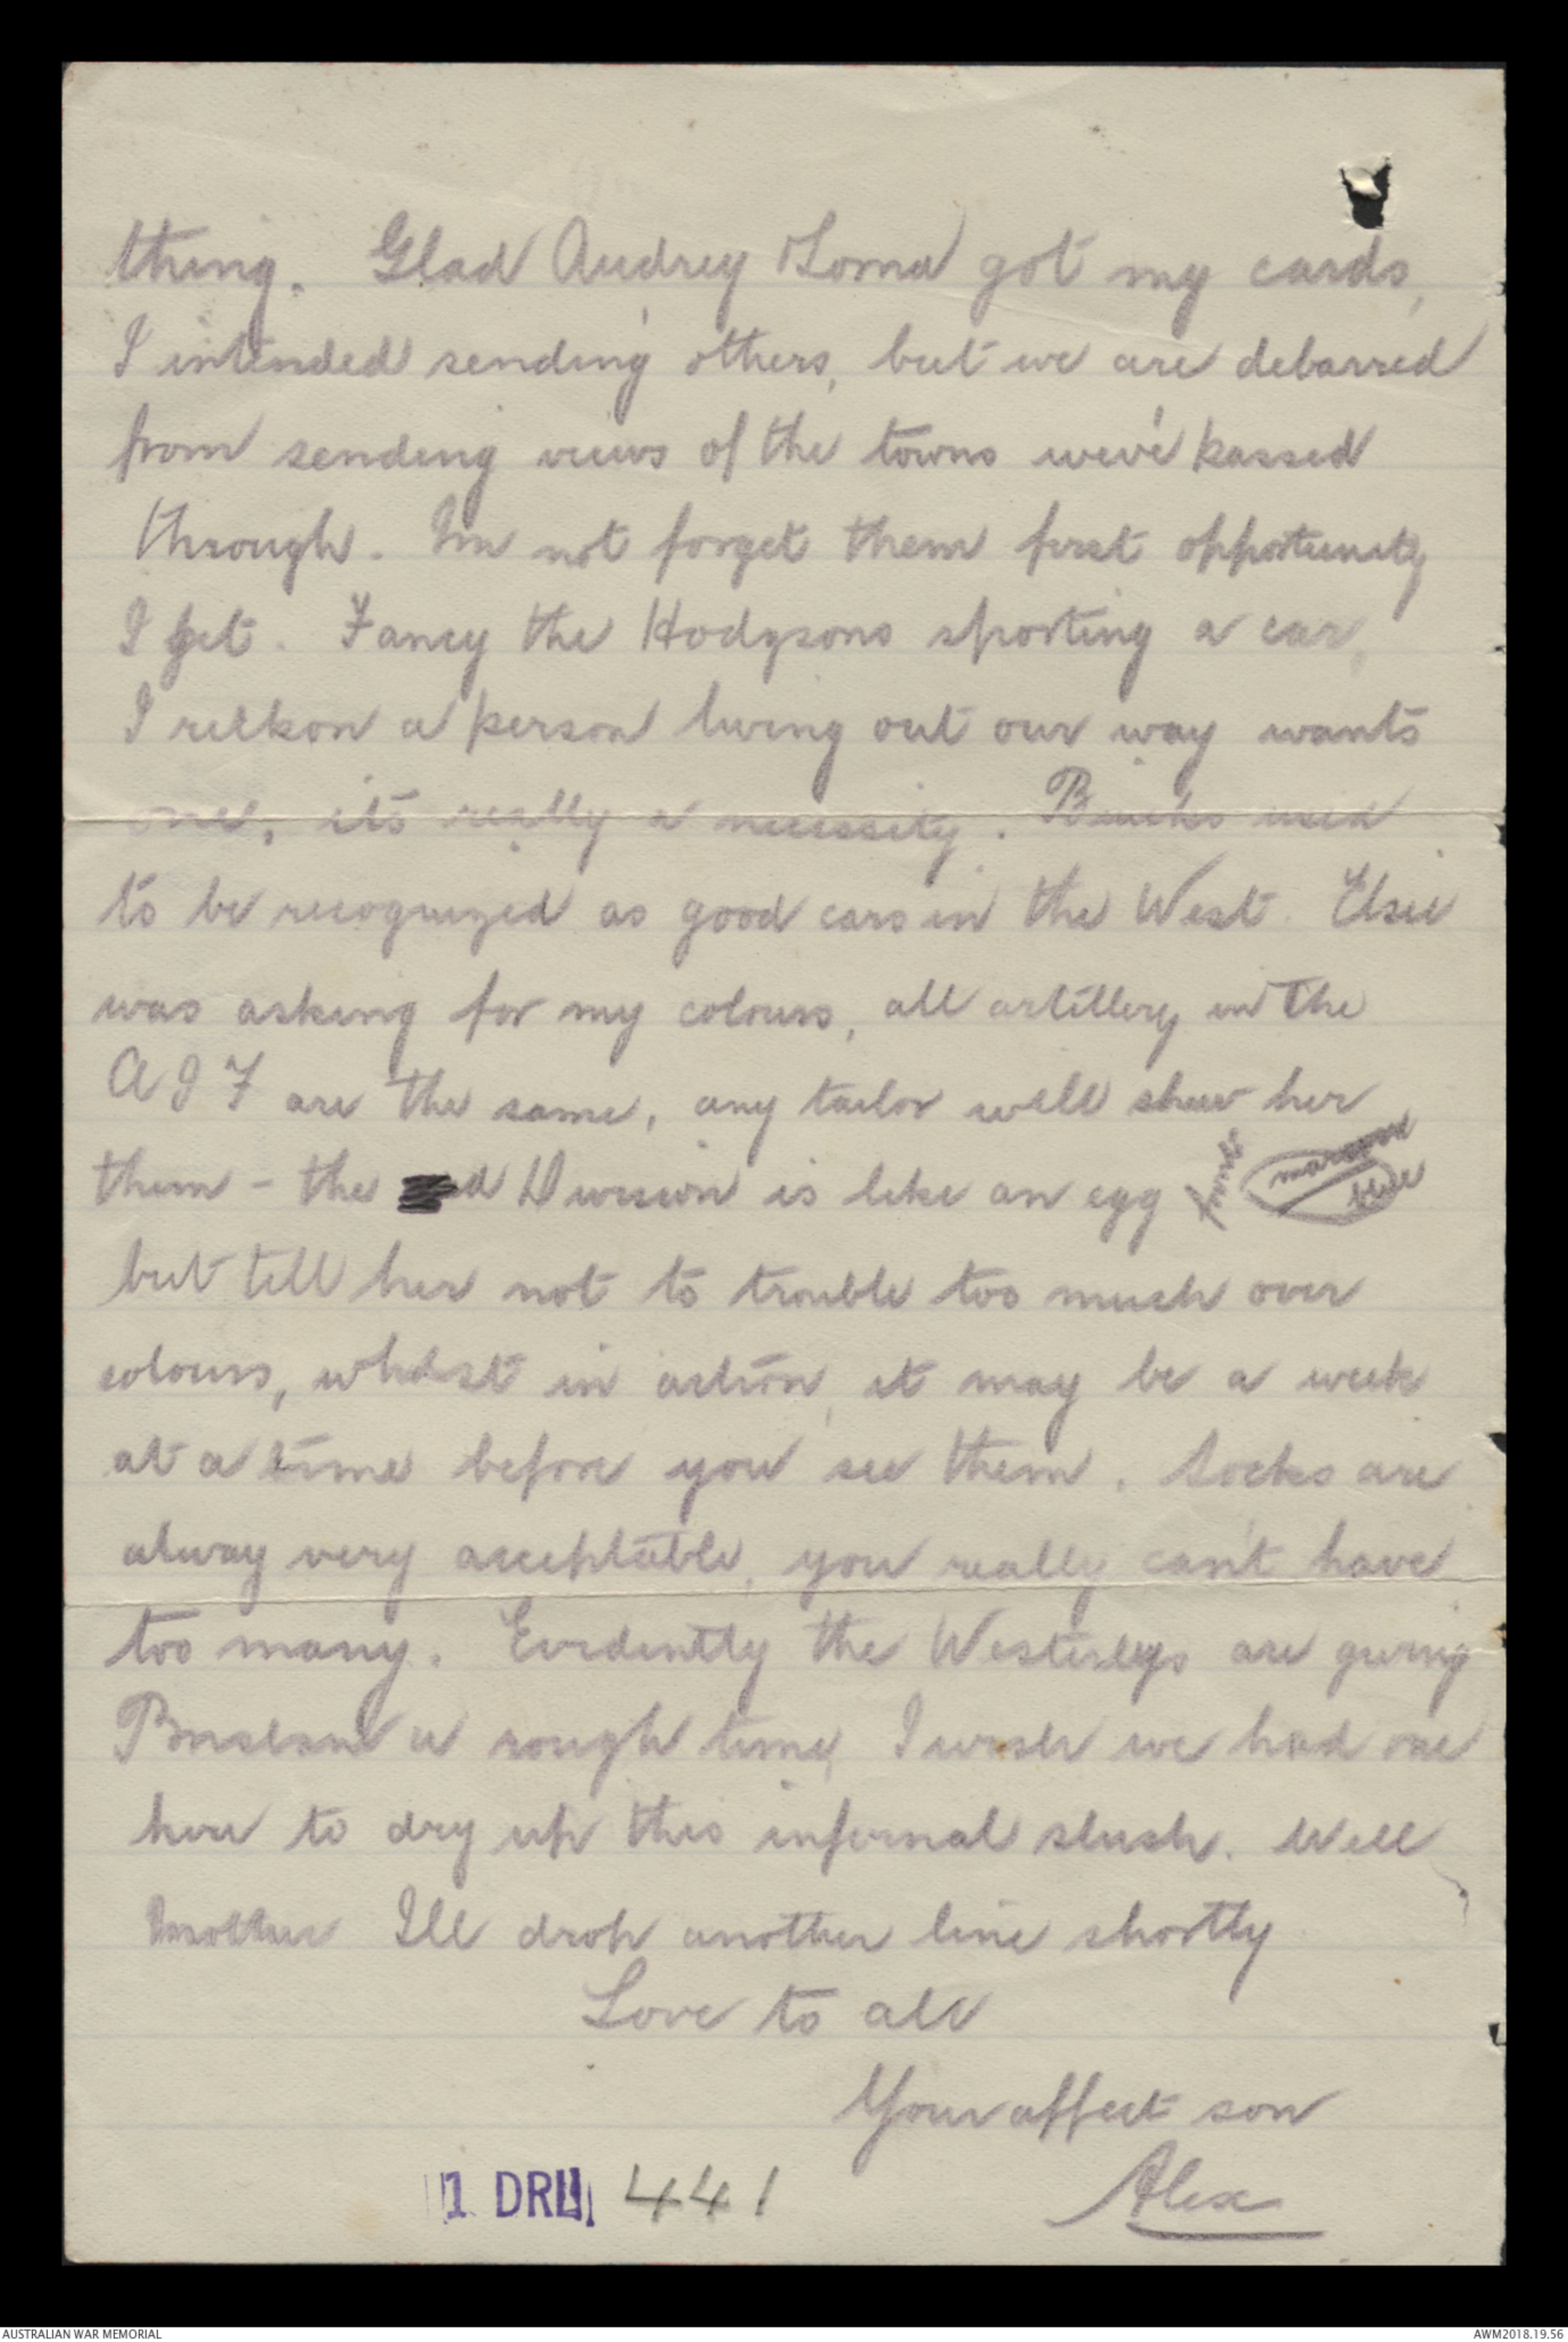 thing. Glad Audrey & Lorna got my cards,
I intended sending others, but we are debarred
from sending views of the towns we've passed
through. I'm not forget them first opportunity
I get. Fancy the Hodgsons sporting a car,
I reckon a person living out our way wants
one, its really a necessity. Buicks used
to be recognized as good cars in the West. Elsie
was asking for my colours, all artillery in the
A I F are the same, any tailor will shew her
them - the d Division is like an egg
maroon
blue
but tell her not to trouble too much over
colours, whilst in action, it may be a week
at a time before you see them. Socks are
alway very acceptable, you really can't have
too many. Evidently the Westerleys are giving
Brisbane a rough time, I wish we had one
here to dry up this infernal slush. Well
Mother I'll drop another line shortly
Love to all
Your affect son
Alex
1 DRL 441
AUSTRALIAN WAR MEMORIAL
AWM2018.19.56